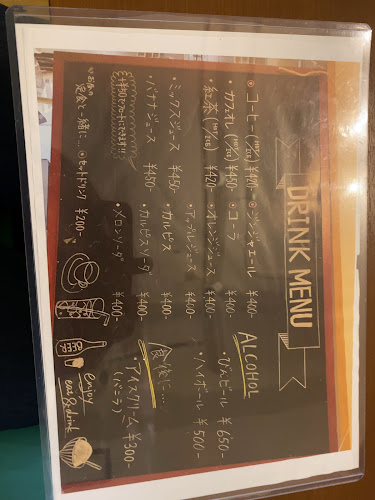 DRINK MENU
・コーヒー(HOT/ICE) ¥420-
・カフェオレ(HOT/ICE) ¥450-
・紅茶(HOT/ICE) ¥420-
・ミックスジュース ¥450-
・バナナジュース ¥450-
・ジンジャエール ¥400-
・コーラ ¥400-
・オレンジジュース ¥400-
・アップルジュース ¥400-
・カルピス ¥400-
・カルピスソーダ ¥400-
・メロンソーダ ¥400-
定食と一緒に…
・セットドリンク ¥200-
ALCOHOL
・びんビール ¥650-
・ハイボール ¥500-
食後に…
・アイスクリーム ¥300-
(バニラ)
BEER
enjoy
eat & drink